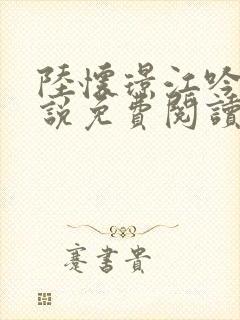 陸懷璟江吟
說免費閱讀
蹇書貴